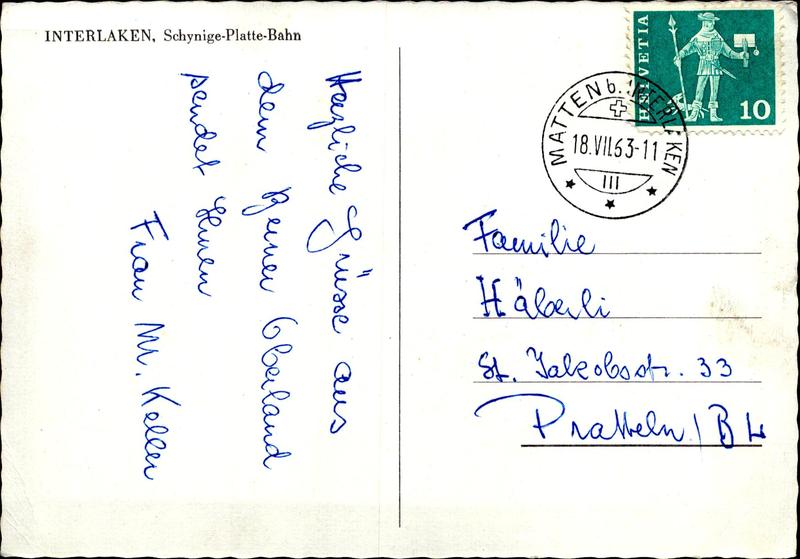 INTERLAKEN, Schynige-Platte-Bahn
Herzliche Grüsse aus
dem Berner Oberland
sendet Ihnen
Frau M. Keller
HELVETIA
10
MATTEN b. INTERLAKEN
18.VII.63-11
III
Familie
Häberli
St. Jakobsstr. 33
Pratteln/BL